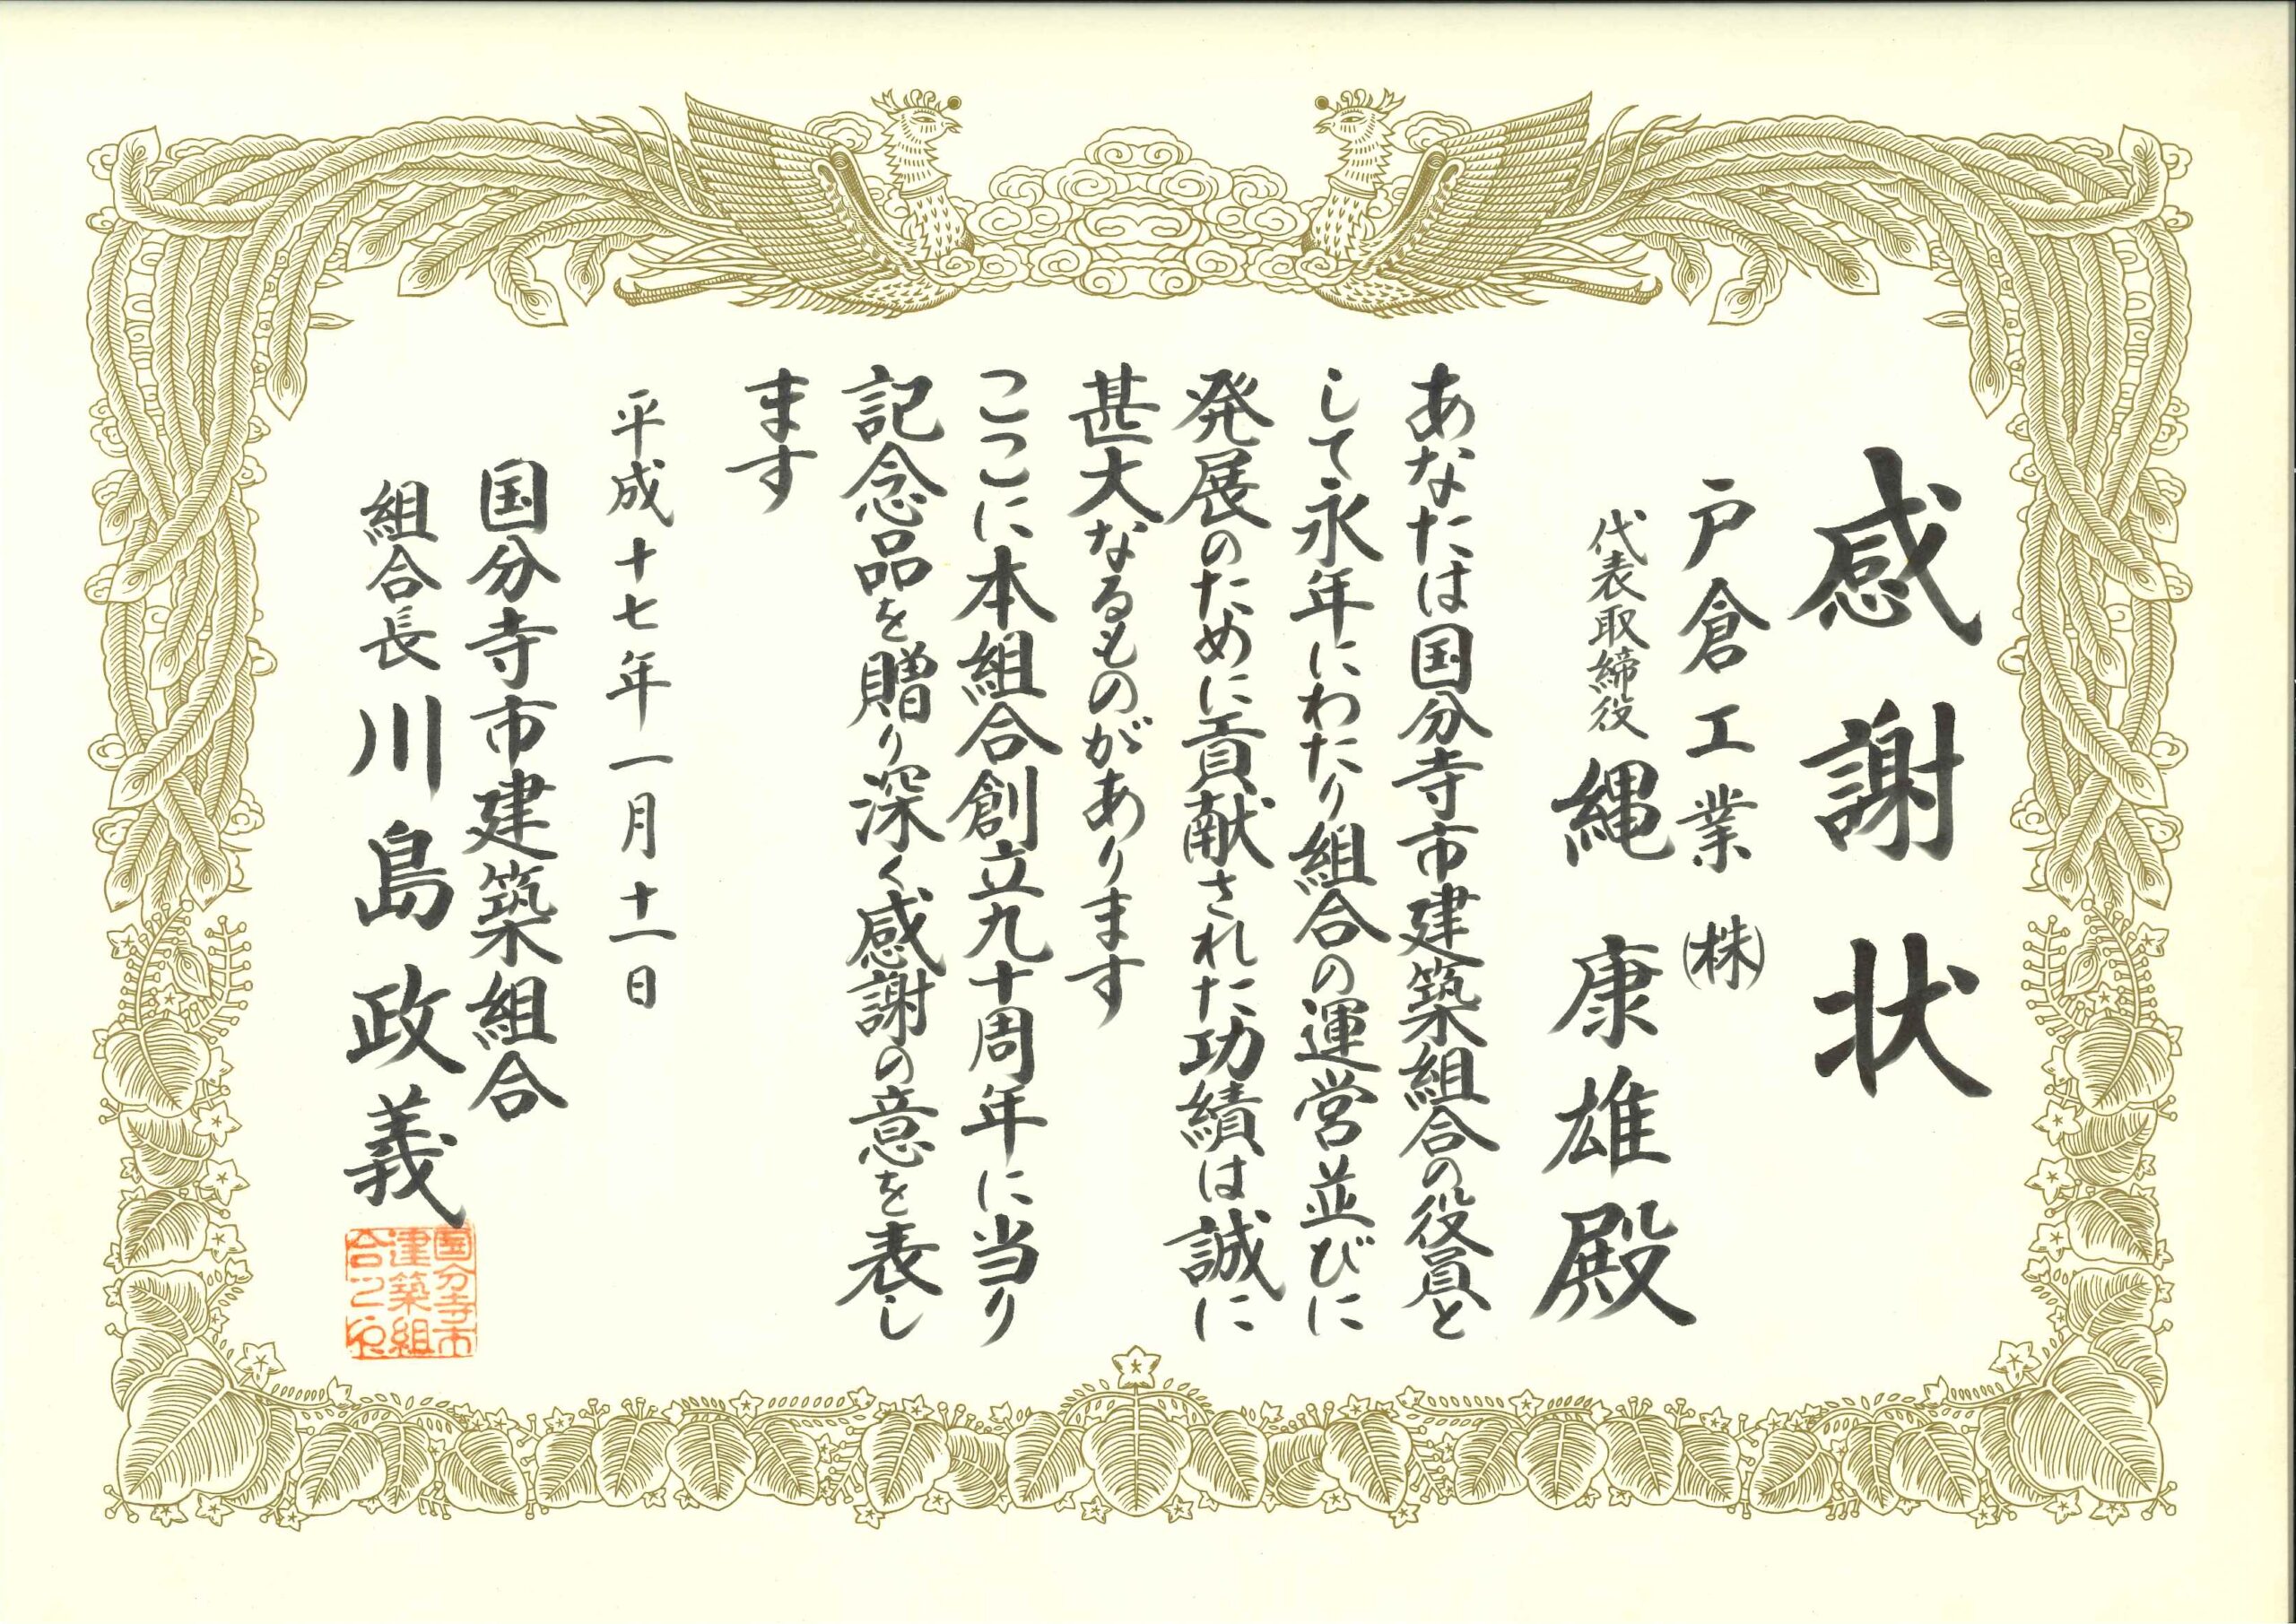 感謝状
戸倉工業㈱
代表取締役 縄 康雄殿
あなたは国分寺市建築組合の役員と
して永年にわたり組合の運営並びに
発展のために貢献された功績は誠に
甚大なるものがあります
ここに本組合創立九十周年に当り
記念品を贈り深く感謝の意を表し
ます
平成十七年一月十一日
国分寺市建築組合
組合長 川島政義
国分寺市
建築組
合之印